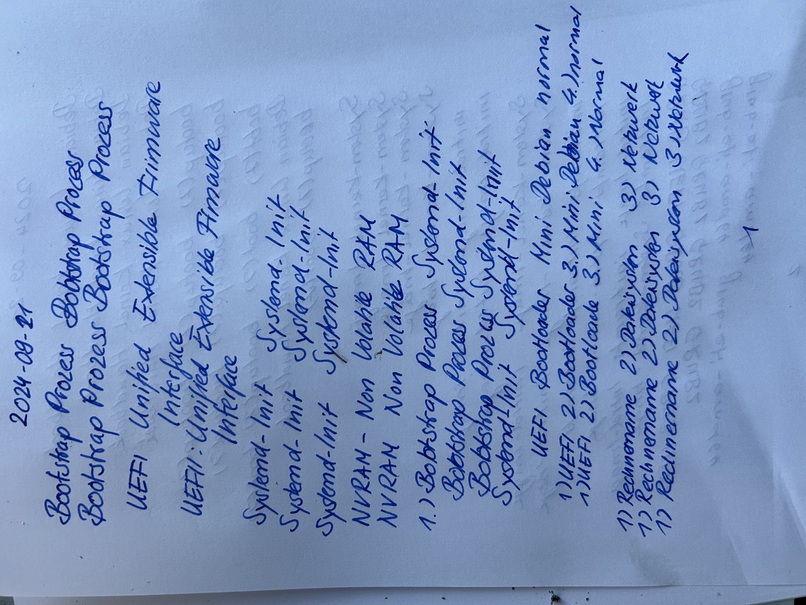 2024-09-21
Bootstrap Prozess Bobtstrap Process
Bootstrap Prozess Bootstrap Process
UEFI Unified Extensible Frimware
Interface
UEFII: Unified Extensible Fimware
Interface
Systemd-Init Systemd-Init
Systemd-Init Systemd-Init
Systemd-Init Systemd-Init
NVRAM - Non Volatile RAM
NVRAM Non Volatile RAM
1.) Bobtstrap Process Systemd-Init
Bobtstrap Process Systemd-Init
Bobtstrap Process Systemd-Init
Systemd-Init Systemd-Init
UEFI Bootloader Mini Debian normal
1) UEFI 2) Bootloader 3.) Mini Debian 4.) normal
1) UEFI 2) Bootloade 3.) Mini 4.) Normal
1) Rechnername 2) Dateisystem 3) Netzwerk
1) Rechnername 2) Dateisystem 3) Netzwerk
1) Rechnername 2) Dateisystem 3.) Netzwerk
1